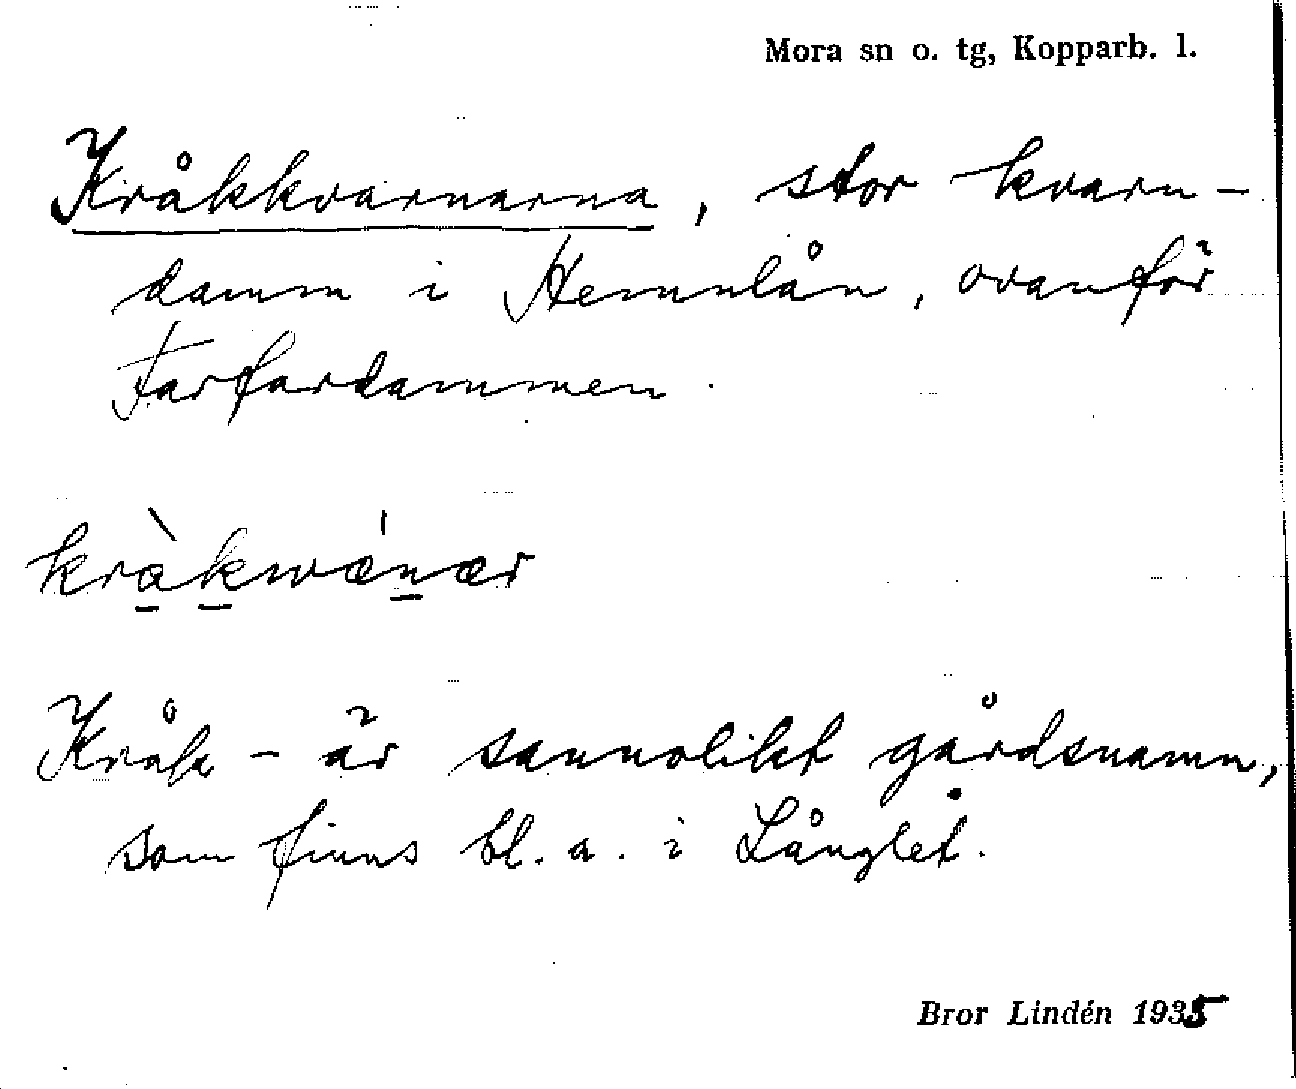 Mora sn o. tg, Kopparb. l.
Kråkkvarnarna, stor kvarn-
damm i Hemulån, ovanför
Farfardammen.
kràkwǽnær
Kråk- är sannolikt gårdsnamn,
som finns bl. a. i Långlet.
Bror Lindén 1935